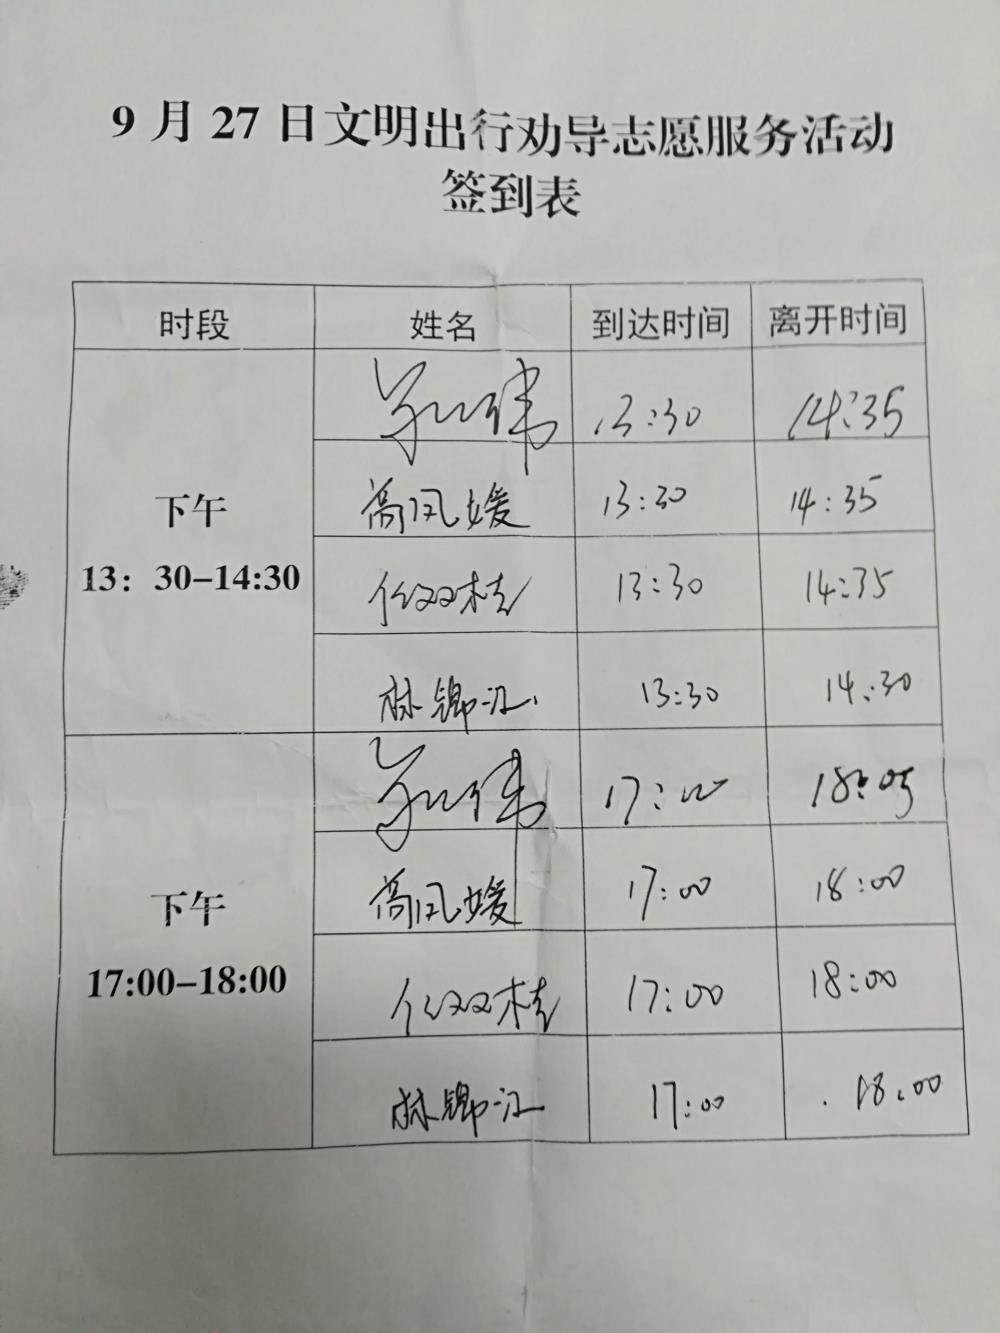 9 月 27 日文明出行劝导志愿服务活动
签到表
时段 姓名 到达时间 离开时间
下午
13：30-14:30
13:30 14:35
高凤媛 13:30 14:35
任双桂 13:30 14:35
林锦江 13:30 14:30
下午
17:00-18:00
17:00 18:05
高凤媛 17:00 18:00
任双桂 17:00 18:00
林锦江 17:00 18:00